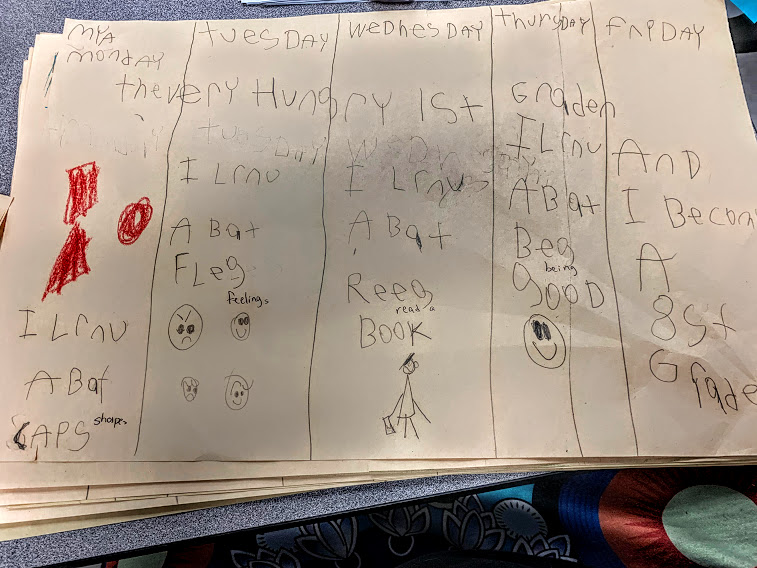 MYA
monDAY
tuesDAY
WeDnesDAY
thursDAY
FriDAY
the very Hungry 1st Graden
I Lrnu
ABat
SAPS shapes
I Lrnu
ABat
FLeg
feelings
I Lrnus
ABat
Reeg
read a
BOOK
I Lrnu
ABat
Beg
being
gooD
AnD
I Become
A
8st
Grade